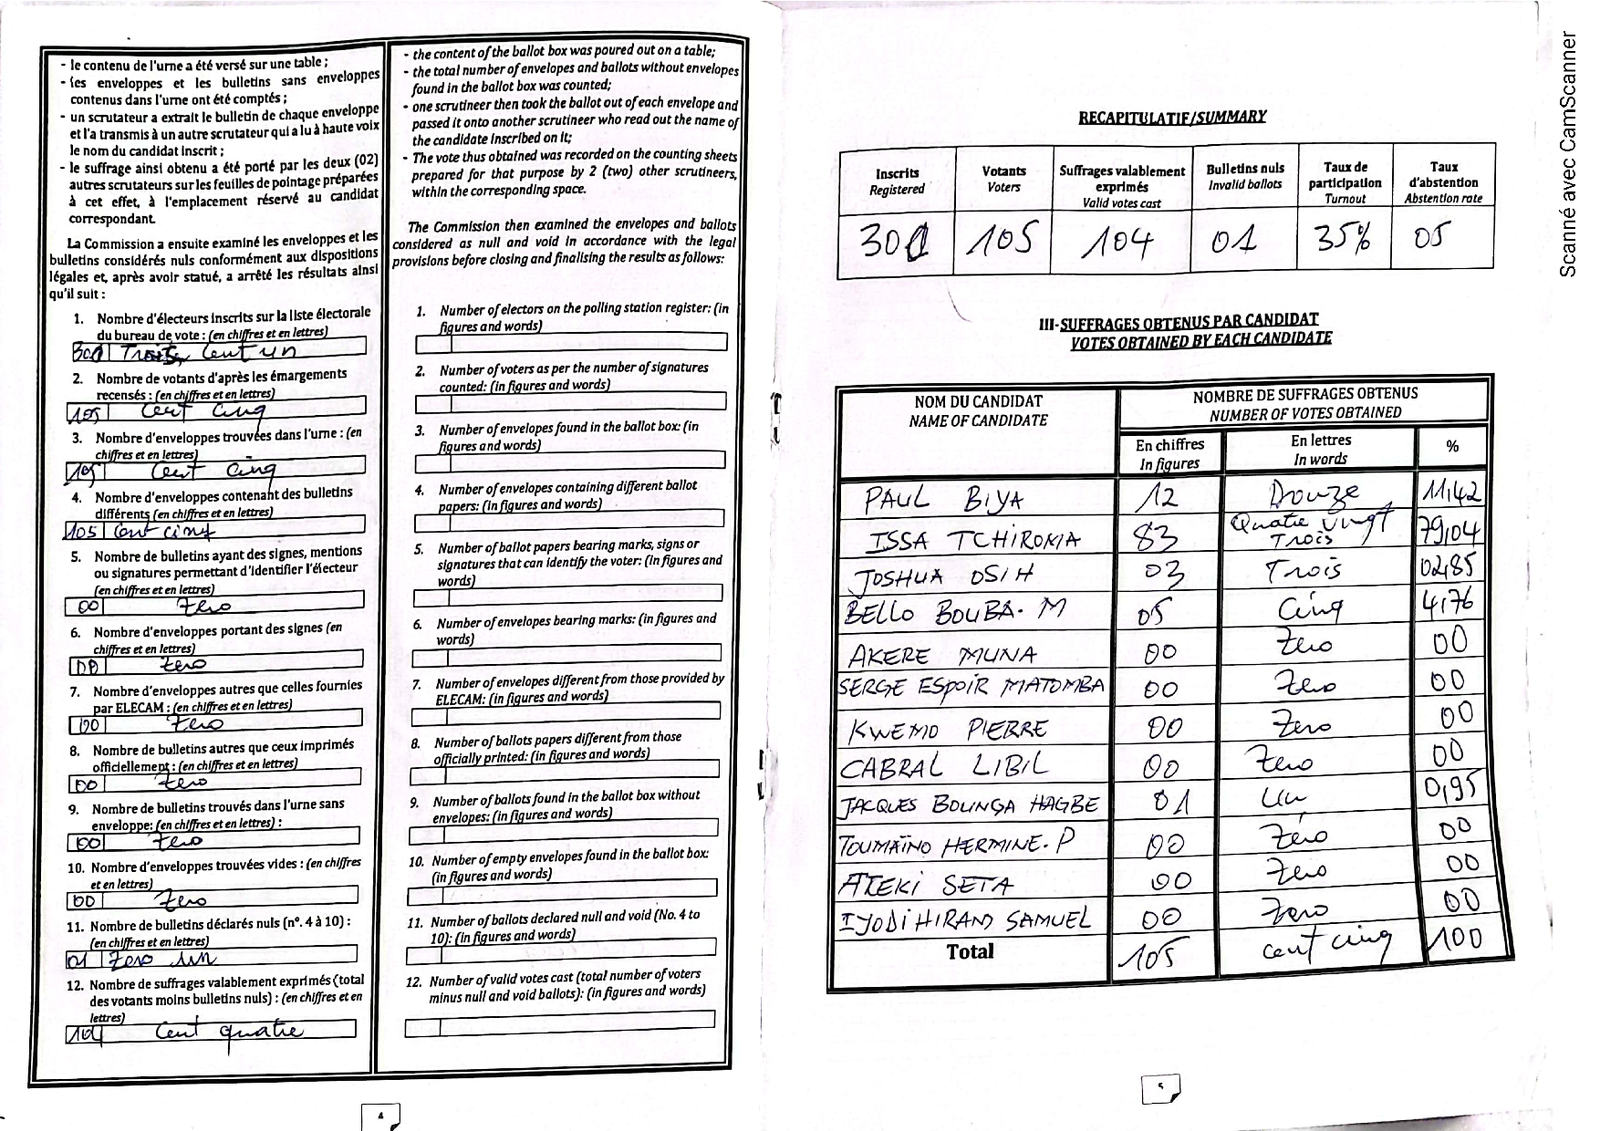 - le contenu de l'urne a été versé sur une table ;
- les enveloppes et les bulletins sans enveloppes
contenus dans l'urne ont été comptés ;
- un scrutateur a extrait le bulletin de chaque enveloppe
et l'a transmis à un autre scrutateur qui a lu à haute voix
le nom du candidat inscrit ;
- le suffrage ainsi obtenu a été porté par les deux (02)
autres scrutateurs sur les feuilles de pointage préparées
à cet effet, à l'emplacement réservé au candidat
correspondant.
La Commission a ensuite examiné les enveloppes et les
bulletins considérés nuls conformément aux dispositions
légales et, après avoir statué, a arrêté les résultats ainsi
qu'il suit :
1. Nombre d'électeurs inscrits sur la liste électorale
du bureau de vote : (en chiffres et en lettres)
301 Trois Cent un
2. Nombre de votants d'après les émargements
recensés : (en chiffres et en lettres)
105 Cent cinq
3. Nombre d'enveloppes trouvées dans l'urne : (en
chiffres et en lettres)
105 Cent Cinq
4. Nombre d'enveloppes contenant des bulletins
différents (en chiffres et en lettres)
105 Cent cinq
5. Nombre de bulletins ayant des signes, mentions
ou signatures permettant d'identifier l'électeur
(en chiffres et en lettres)
00 Zero
6. Nombre d'enveloppes portant des signes (en
chiffres et en lettres)
00 Zero
7. Nombre d'enveloppes autres que celles fournies
par ELECAM : (en chiffres et en lettres)
00 Zero
8. Nombre de bulletins autres que ceux imprimés
officiellement : (en chiffres et en lettres)
00 Zero
9. Nombre de bulletins trouvés dans l'urne sans
enveloppe: (en chiffres et en lettres) :
00 Zero
10. Nombre d'enveloppes trouvées vides : (en chiffres
et en lettres)
00 Zero
11. Nombre de bulletins déclarés nuls (n°. 4 à 10) :
(en chiffres et en lettres)
01 Zero un
12. Nombre de suffrages valablement exprimés (total
des votants moins bulletins nuls) : (en chiffres et en
lettres)
104 Cent quatre
- the content of the ballot box was poured out on a table;
- the total number of envelopes and ballots without envelopes
found in the ballot box was counted;
- one scrutineer then took the ballot out of each envelope and
passed it onto another scrutineer who read out the name of
the candidate inscribed on it;
- The vote thus obtained was recorded on the counting sheets
prepared for that purpose by 2 (two) other scrutineers,
within the corresponding space.
The Commission then examined the envelopes and ballots
considered as null and void in accordance with the legal
provisions before closing and finalising the results as follows:
1. Number of electors on the polling station register: (in
figures and words)
2. Number of voters as per the number of signatures
counted: (in figures and words)
3. Number of envelopes found in the ballot box: (in
figures and words)
4. Number of envelopes containing different ballot
papers: (in figures and words)
5. Number of ballot papers bearing marks, signs or
signatures that can identify the voter: (in figures and
words)
6. Number of envelopes bearing marks: (in figures and
words)
7. Number of envelopes different from those provided by
ELECAM: (in figures and words)
8. Number of ballots papers different from those
officially printed: (in figures and words)
9. Number of ballots found in the ballot box without
envelopes: (in figures and words)
10. Number of empty envelopes found in the ballot box:
(in figures and words)
11. Number of ballots declared null and void (No. 4 to
10): (in figures and words)
12. Number of valid votes cast (total number of voters
minus null and void ballots): (in figures and words)
4
RECAPITULATIF/SUMMARY
Inscrits Votants Suffrages valablement Bulletins nuls Taux de Taux
Registered Voters exprimés Invalid ballots participation d'abstention
Valid votes cast Turnout Abstention rate
301 105 104 01 35% 05
III- SUFFRAGES OBTENUS PAR CANDIDAT
VOTES OBTAINED BY EACH CANDIDATE
NOM DU CANDIDAT NOMBRE DE SUFFRAGES OBTENUS
NAME OF CANDIDATE NUMBER OF VOTES OBTAINED
En chiffres En lettres %
In figures In words
PAUL BIYA 12 Douze 11,42
ISSA TCHIROMA 83 Quatre vingt Trois 79,04
JOSHUA OSIH 03 Trois 02,85
BELLO BOUBA. M 05 Cinq 4,76
AKERE MUNA 00 Zero 00
SERGE ESPOIR MATOMBA 00 Zero 00
KWEMO PIERRE 00 Zero 00
CABRAL LIBIL 00 Zero 00
JACQUES BOUNGA HAGBE 01 Un 0,95
TOUMAÏNO HERMINE. P 00 Zéro 00
ATEKI SETA 00 Zero 00
IYODI HIRAM SAMUEL 00 Zero 00
Total 105 cent cinq 100
5
Scanné avec CamScanner